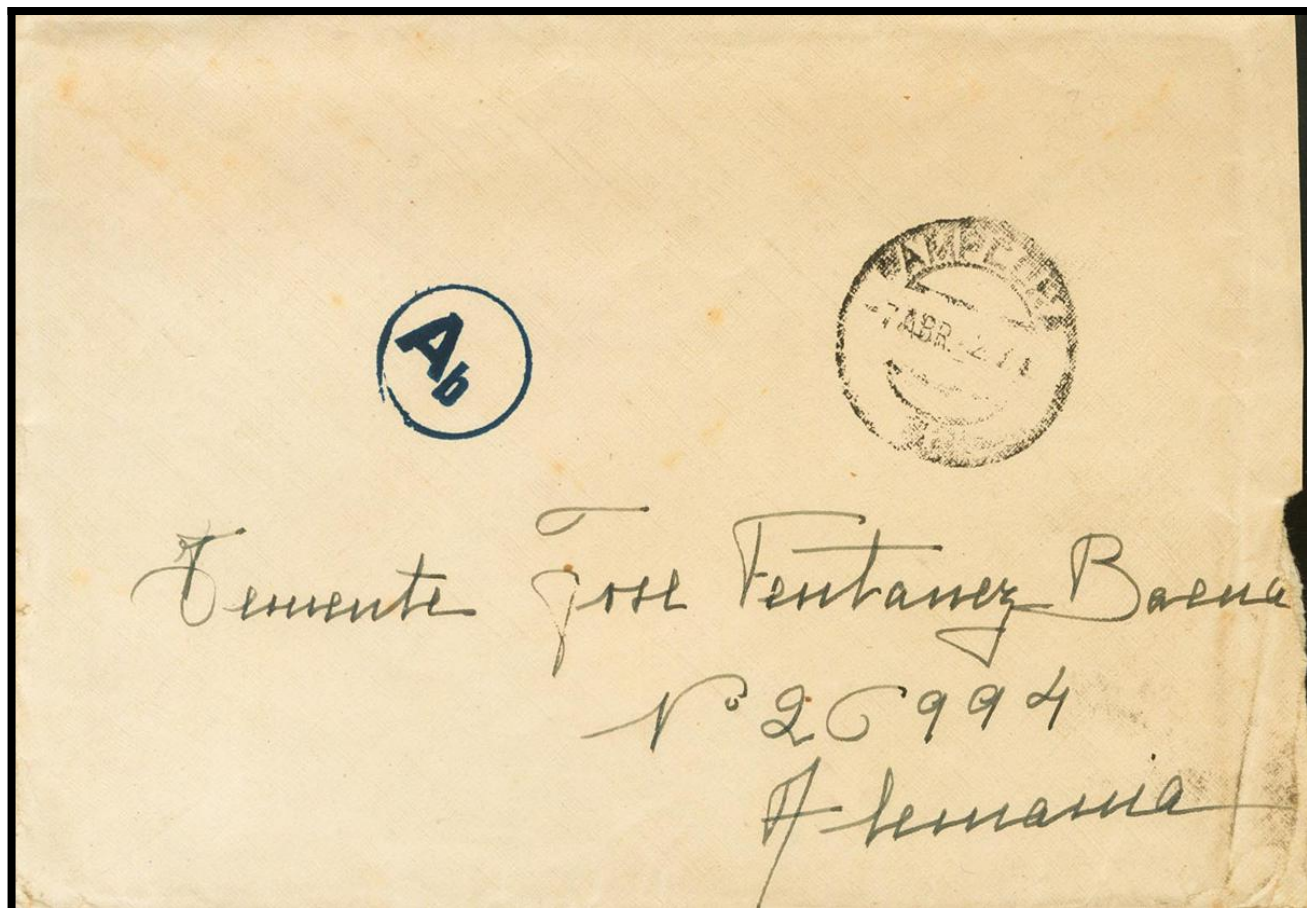 Ab
7 ABR.
Teniente Jose Fentanez Baena
Nº 26994
Alemania